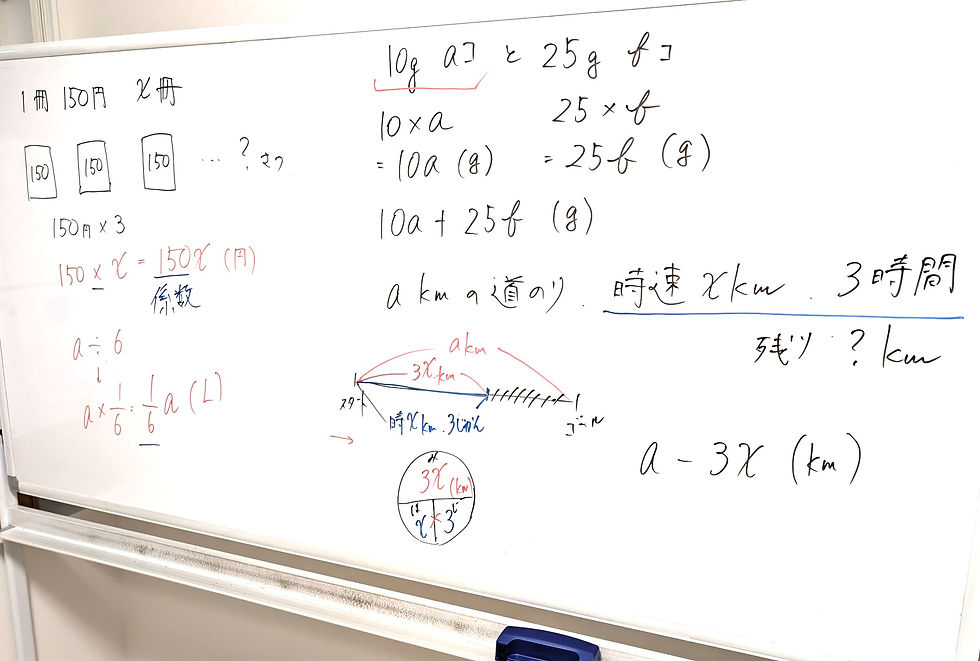 1冊 150円 x冊
150 150 150 … ? さつ
150円×3
150 × x = 150x (円)
係数
a ÷ 6
↓
a × 1/6 = 1/6 a (L)
10g aコ と 25g bコ
10×a 25×b
= 10a (g) = 25b (g)
10a + 25b (g)
a kmの道のり. 時速 x km. 3時間
残り ? km
a km
3x km
スタート
時x km. 3じかん
ゴール
→
み
3x (km)
は じ
x × 3
a - 3x (km)